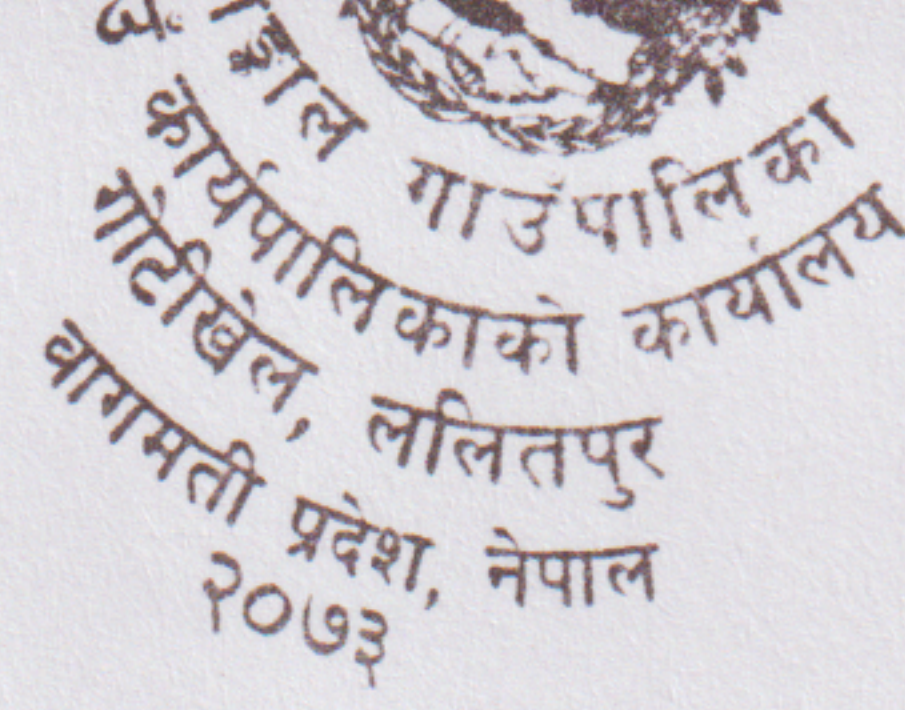 गाउँपालिका
कार्यपालिकाको कार्यालय
गोटीखेल, ललितपुर
वागमती प्रदेश, नेपाल
२०७३